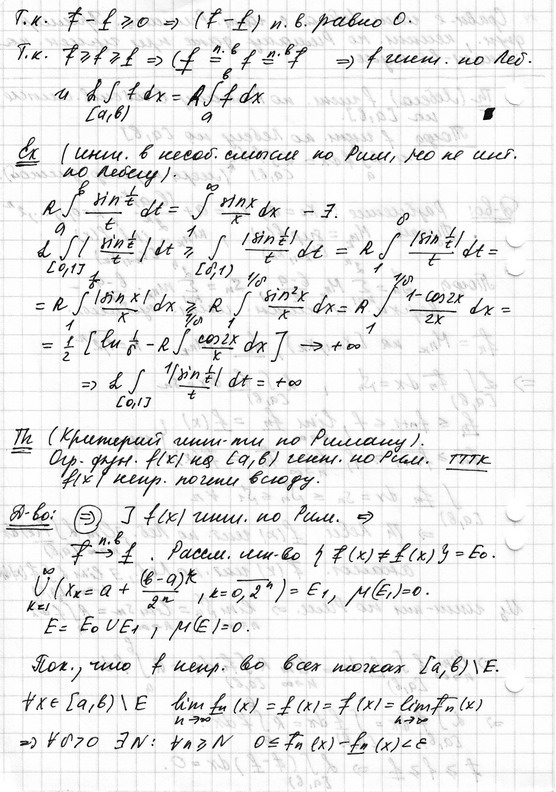 Т.к. f̅ - f̲ ≥ 0 ⇒ (f̅ - f̲) п.в. равно 0.
Т.к. f̅ ≥ f ≥ f̲ ⇒ (f̲ =ᵖ·ᵛ f =ᵖ·ᵛ f̅ ⇒ f инт. по Леб.
и L∫[a,b) f dx = R∫ₐᵇ f dx
Ex (инт. в несоб. смысле по Рим, но не инт.
по Лебегу).
R∫ sin 1/t / t dt = ∫₁^∞ sinx/x dx - ∃.
L∫[0,1] | sin 1/t / t | dt ≥ ∫(δ,1) |sin 1/t| / t dt = R∫₁^δ |sin 1/t| / t dt =
= R∫₁^{1/δ} |sin x|/x dx ≥ R∫₁^{1/δ} sin²x/x dx = R∫₁^{1/δ} 1-cos2x / 2x dx =
= 1/2 [ln 1/δ - R∫ cos2x/x dx] → +∞
⇒ L∫[0,1] |sin 1/t| / t dt = +∞
Th (Критерий инт-ти по Риману).
Огр. фун. f(x) на [a,b) инт. по Рим. ТТТК
f(x) непр. почти всюду.
Д-во: ⇒ ] f(x) инт. по Рим. ⇒
f̅ →ᵖ·ᵛ f̲. Рассм. мн-во { f̅(x) ≠ f̲(x)} = E₀.
∪_{k=1}^∞ (x_k = a + (b-a)k / 2ⁿ, k = 0,2ⁿ) = E₁, μ(E₁) = 0.
E = E₀ ∪ E₁, μ(E) = 0.
Пок., что f непр. во всех точках [a,b) \ E.
∀x ∈ [a,b) \ E lim_{n→∞} f̲ₙ(x) = f̲(x) = f̅(x) = lim_{n→∞} f̅ₙ(x)
⇒ ∀δ>0 ∃N: ∀n ≥ N 0 ≤ f̅ₙ(x) - f̲ₙ(x) < ε